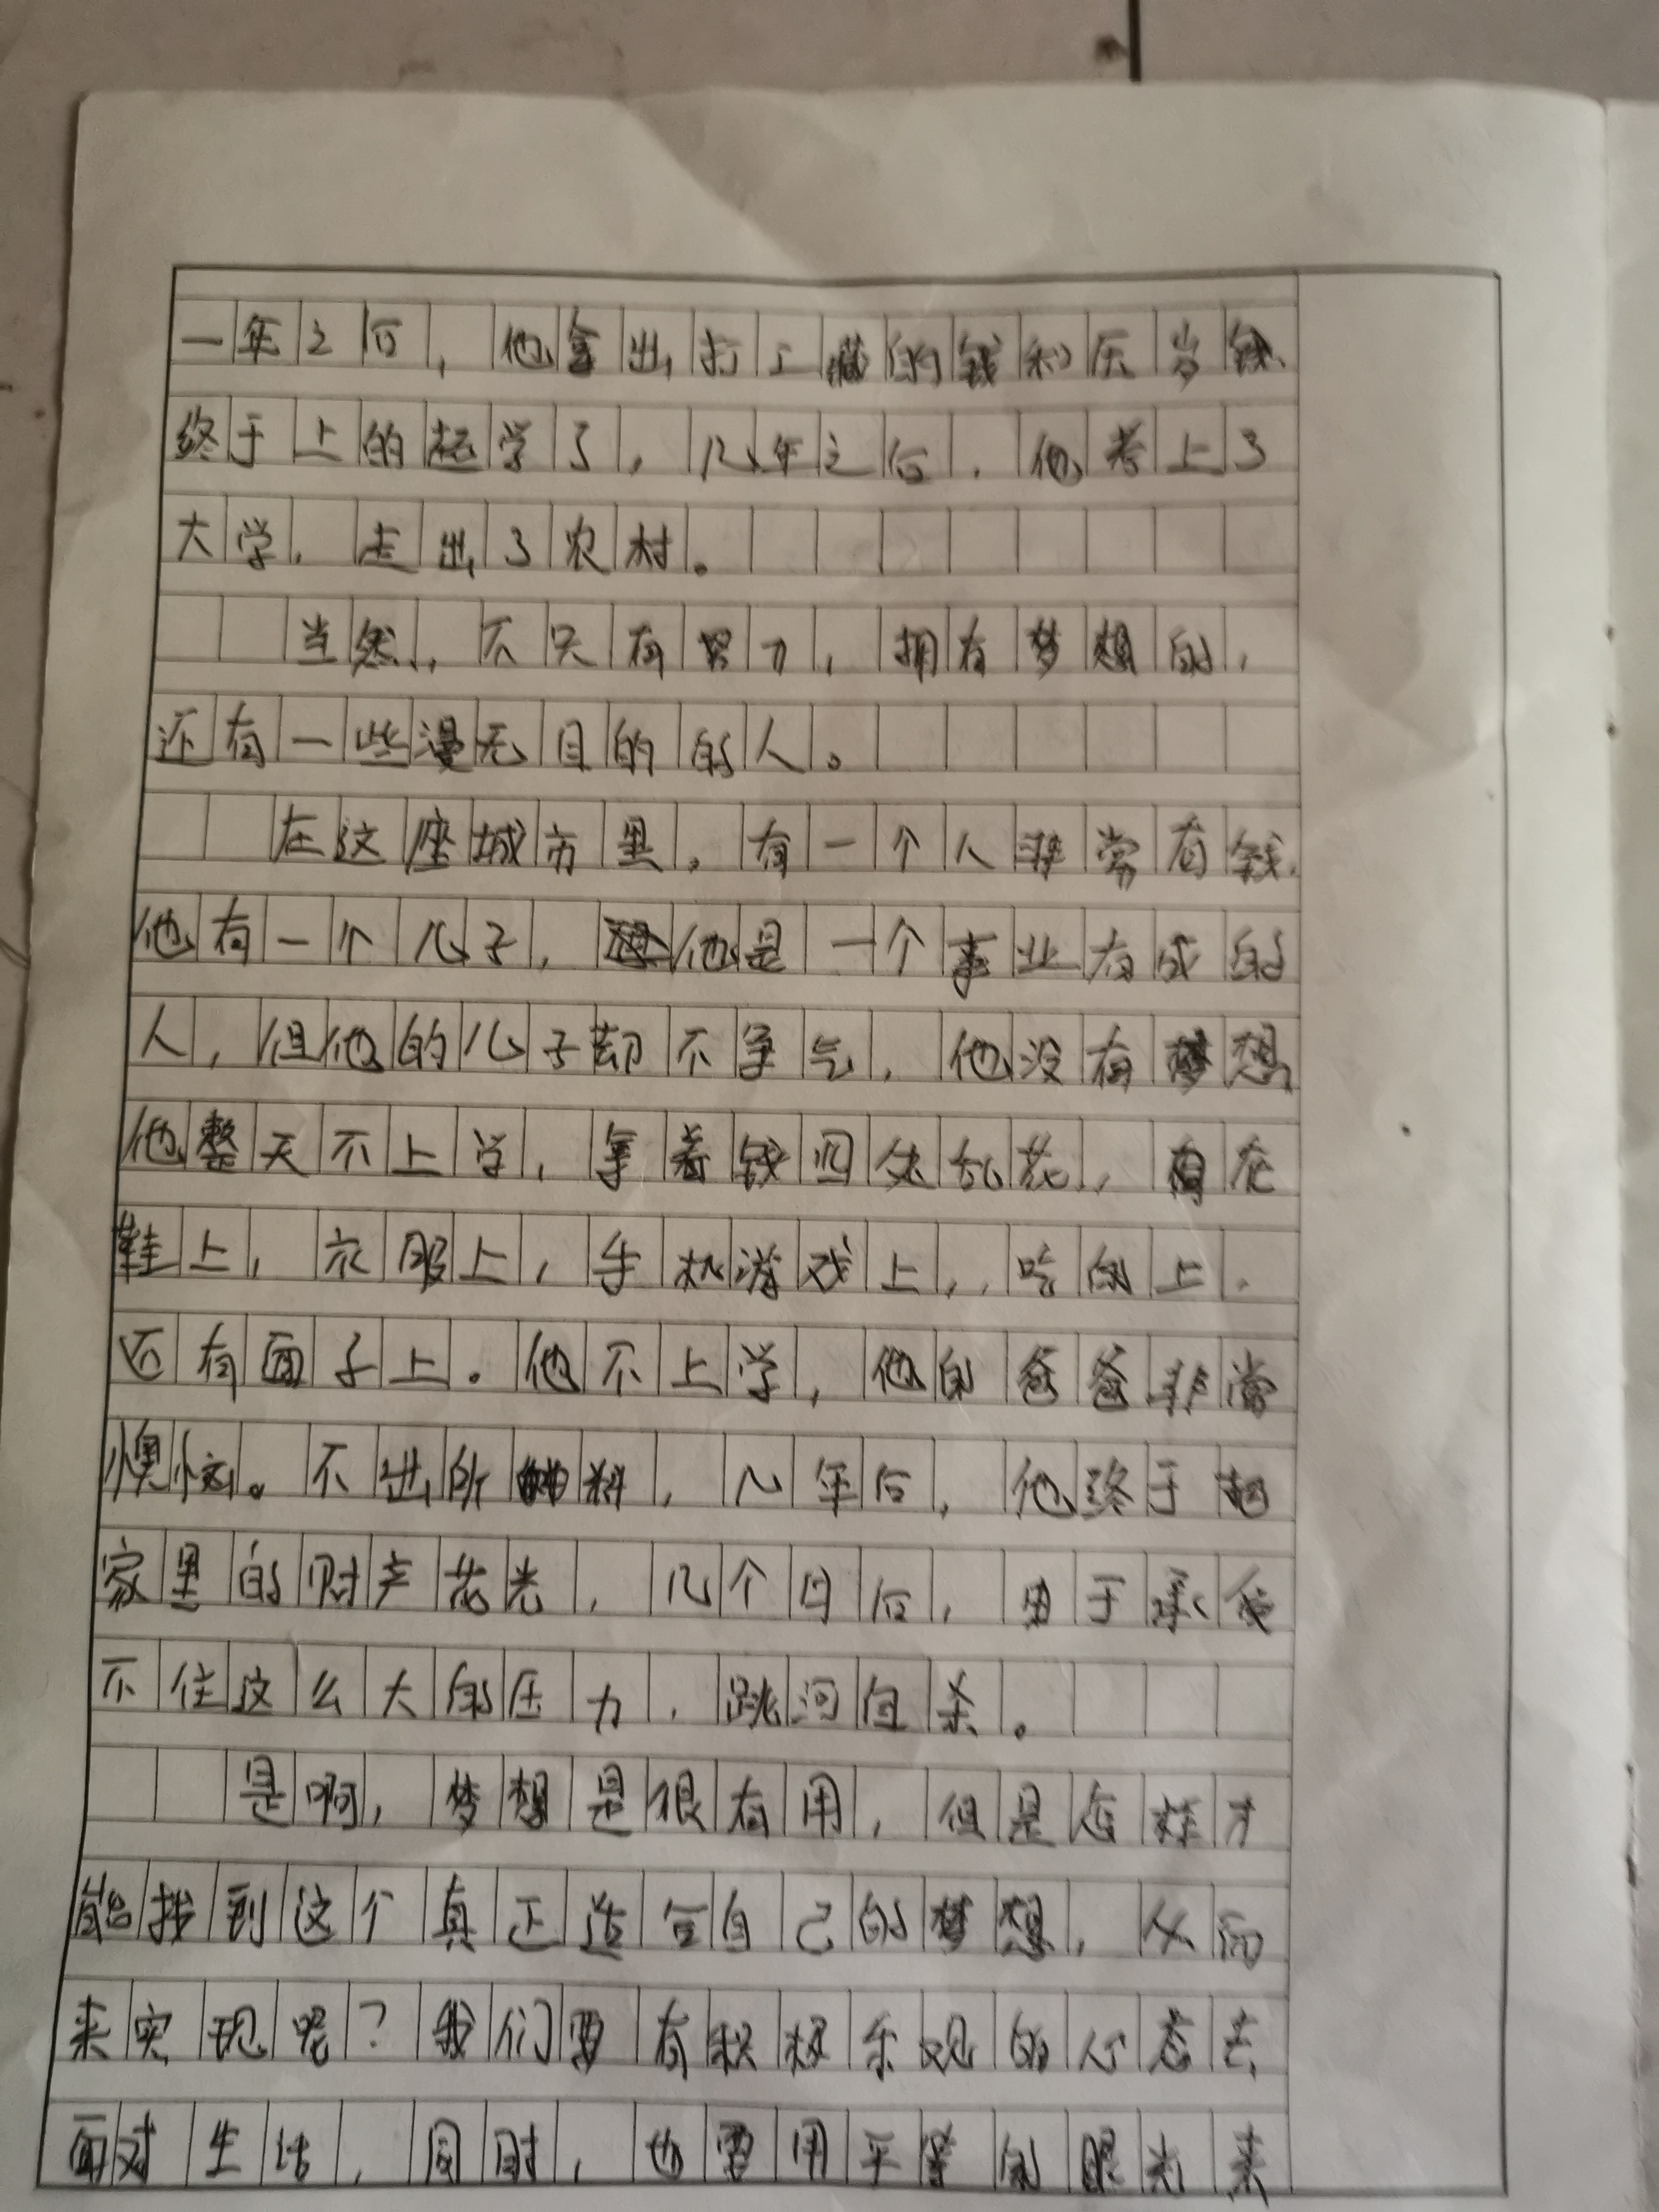 一年之后，他拿出打工藏的钱和压岁钱，
终于上的起学了，几年之后，他考上了
大学，走出了农村。
当然，不只有努力，拥有梦想的，
还有一些漫无目的的人。
在这座城市里，有一个人非常有钱，
他有一个儿子，他是一个事业有成的
人，但他的儿子却不争气，他没有梦想，
他整天不上学，拿着钱四处乱花，有在
鞋上，衣服上，手机游戏上，吃的上，
还有面子上。他不上学，他的爸爸非常
懊恼。不出所料，几年后，他终于把
家里的财产花光，几个月后，由于承受
不住这么大的压力，跳河自杀。
是啊，梦想是很有用，但是怎样才
能找到这个真正适合自己的梦想，从而
来实现呢？我们要有积极乐观的心态去
面对生活，同时，也要用平等的眼光来